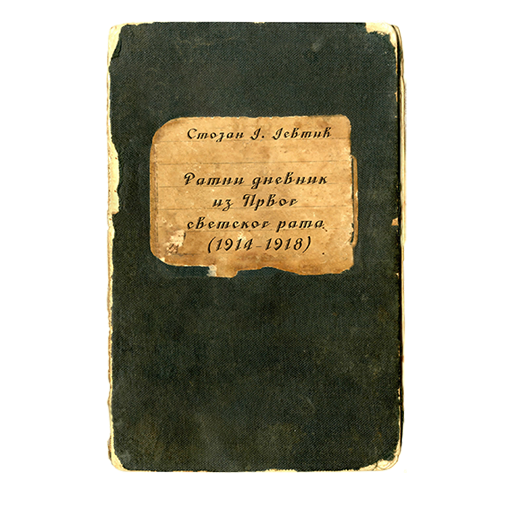 Стојан Ј. Јевтик
Ратни дневник
из Првог
светског рата
(1914-1918)